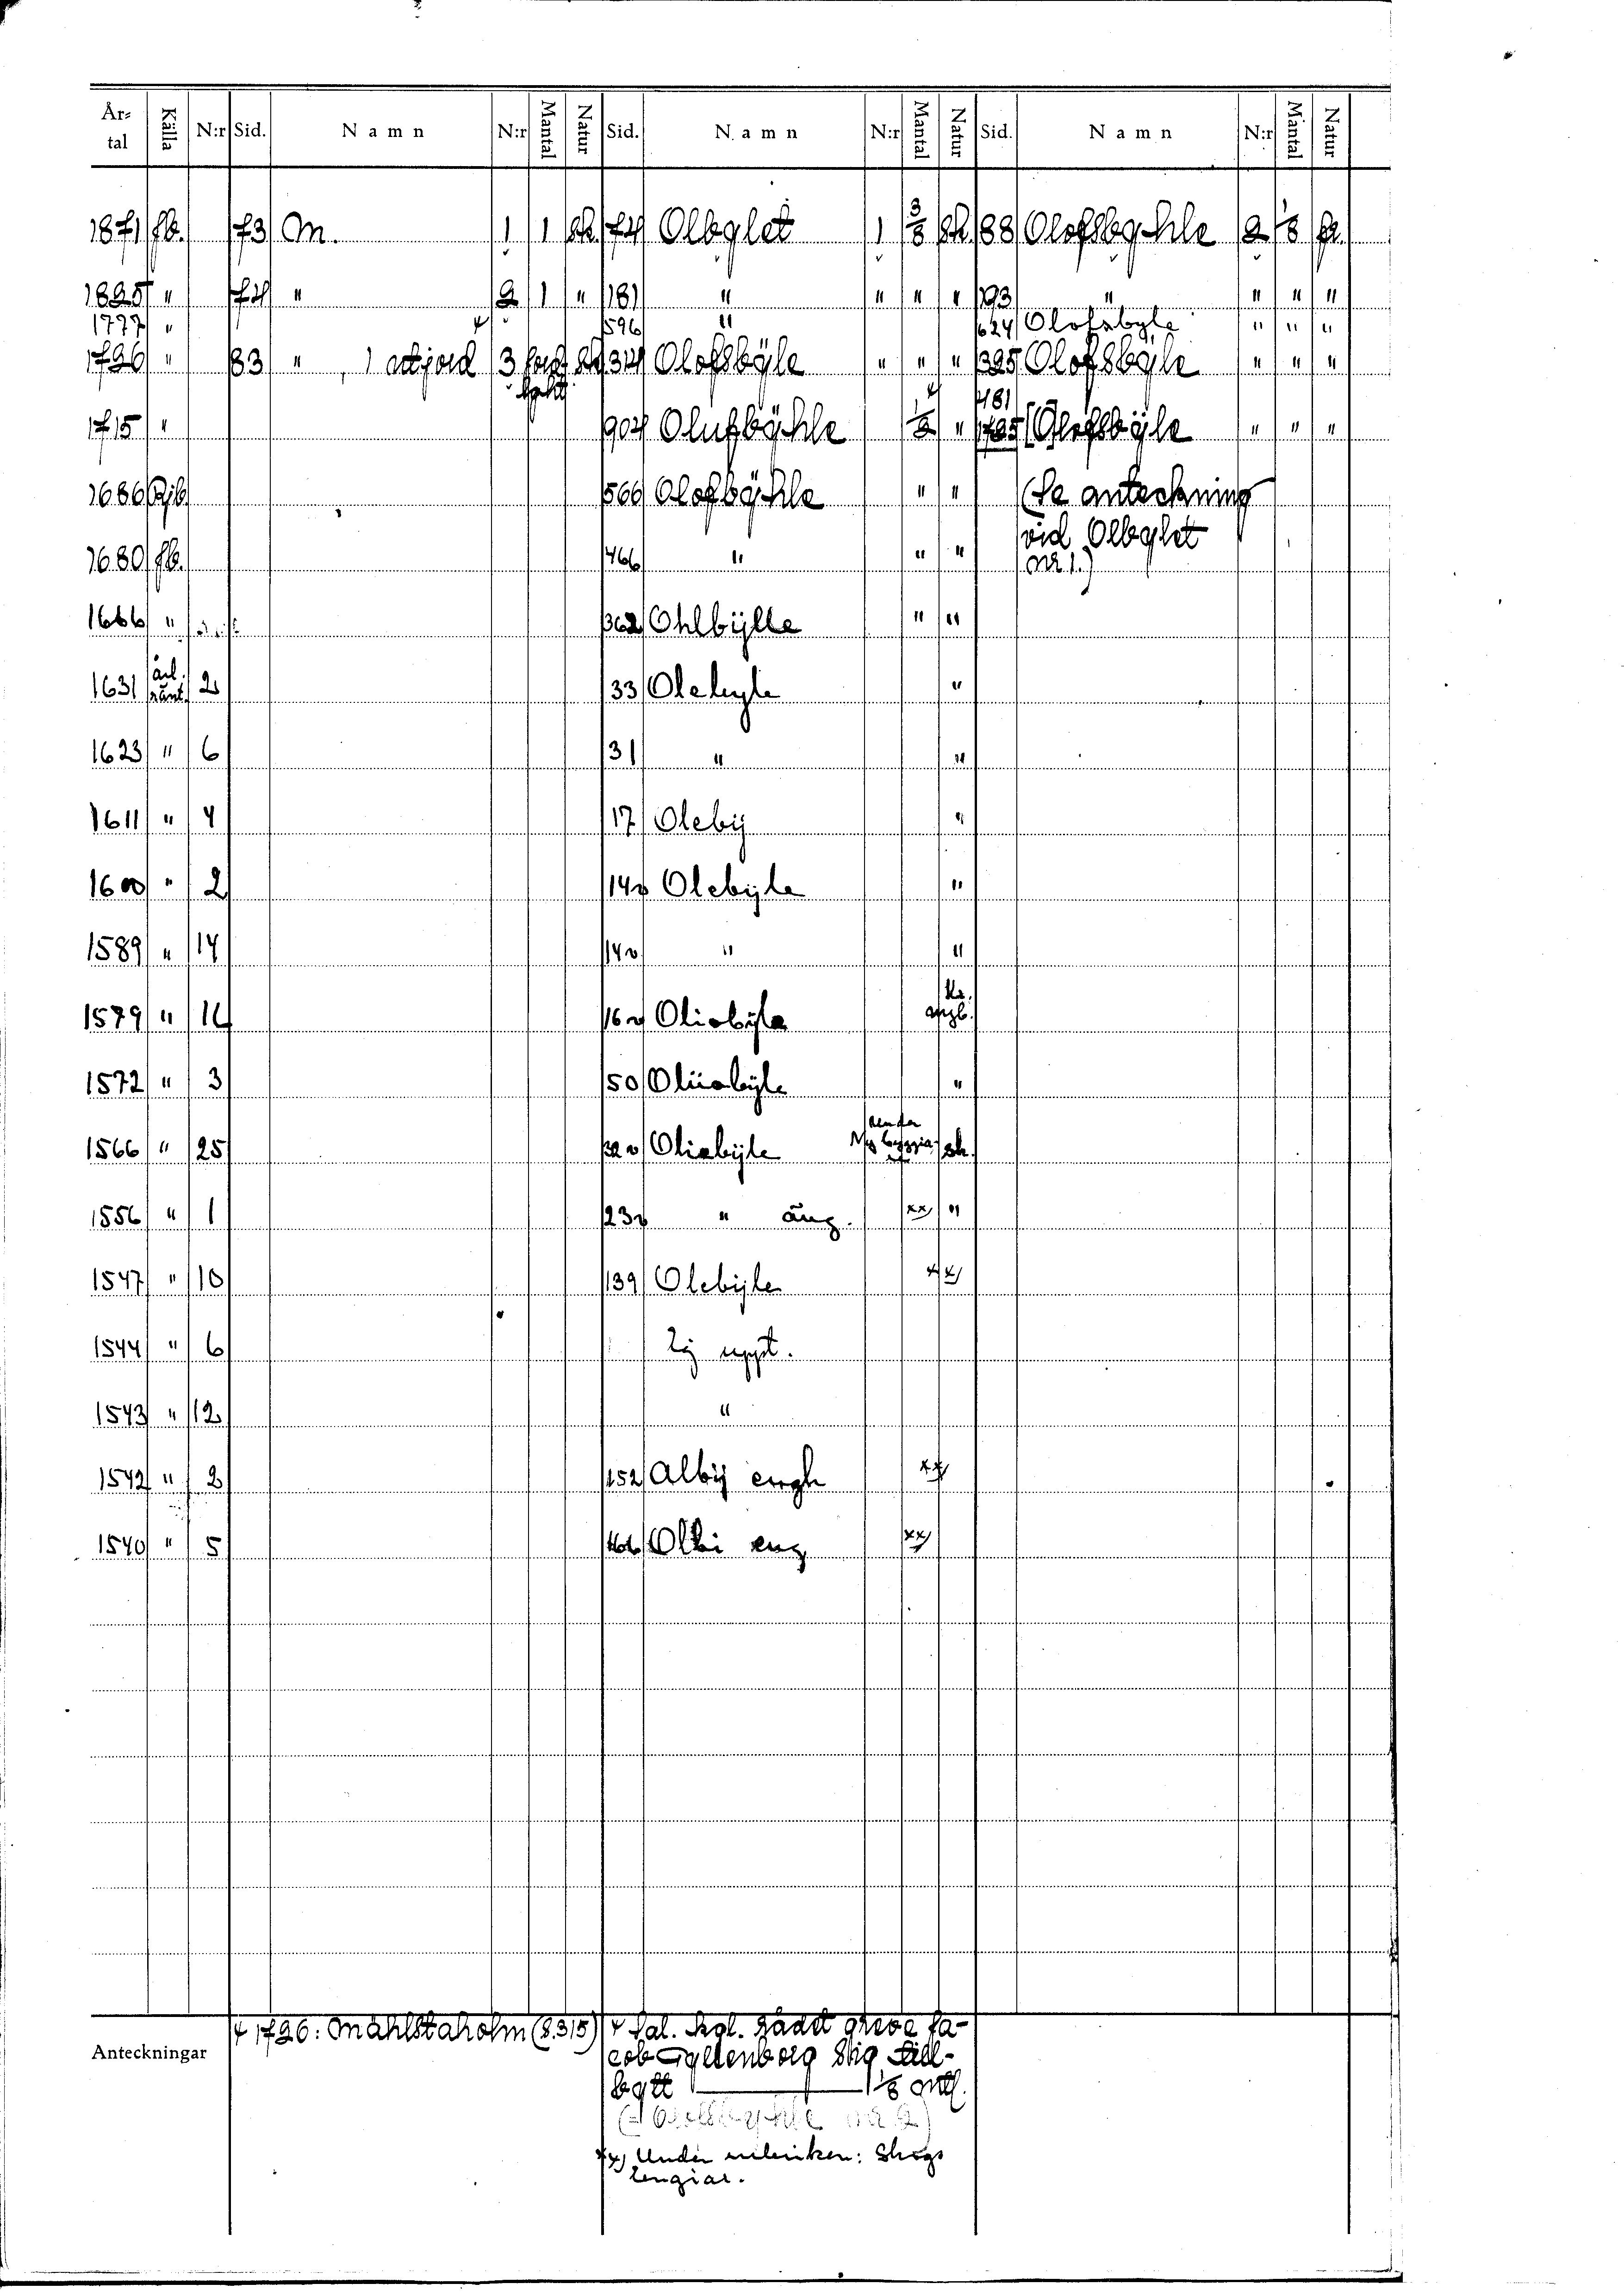 År-tal Källa N:r Sid. Namn N:r Mantal Natur Sid. Namn N:r Mantal Natur Sid. Namn N:r Mantal Natur
1871 Jb. 73 M. 1 1 sk. 74 Olbylet 1 3/8 sk. 88 Olofsbyhle 2 1/8 fr.
1825 " 74 " 2 1 " 181 " " " " 193 " " " "
1777 " 596 " 624 Olofsbyle " " "
1726 " 83 " , 1 utjord 3 sk 314 Olofsbÿle " " " 325 Olofsbÿle " " "
481
1715 " 904 Olufbÿhle 1/2 " 1725 [Olofsbÿle " " "
1686 Rjb. 566 Olofbÿhle " " (Se anteckning
vid Olbylet
1680 Jb. 466 " " " nr 1.)
1666 " 362 Ohlbÿlle " "
1631 årl. ränt. 2 33 Olebyle "
1623 " 6 31 " "
1611 " 4 17 Olebij "
1600 " 2 14v Olebyle "
1589 " 14 14v " "
1579 " 16 16v Oliobÿle
1572 " 3 50 Oliiobÿle "
1566 " 25 32v Oliebÿle sk.
1556 " 1 23v " äng. xx) "
1547 " 10 139 Olebijle xx)
1544 " 6 Ej uppt.
1543 " 12 "
1542 " 2 152 Albij engh xx)
1540 " 5 166 Olbi eng xx)
Anteckningar
x 1726: Måhlstaholm (s. 315)
x Sal. Kgl. Rådet greve Ja-
cob Gyllenborg Sig till-
bytt 1/8 mtl.
xx) Under rubriken: Skogs
Lengiar.